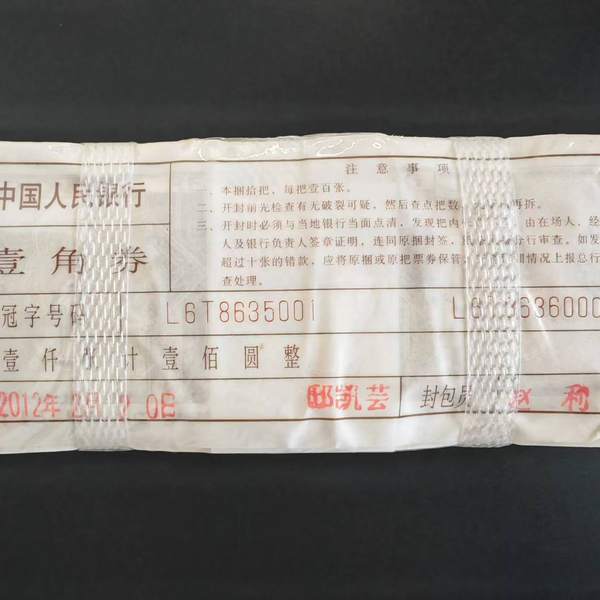 中国人民银行
壹角券
注意事项
一、本捆拾把，每把壹百张。
二、开封前先检查有无破裂可疑，然后查点把数 再拆。
三、开封时必须与当地银行当面点清，发现把内 由在场人、经
人及银行负责人签章证明，连同原捆封签， 行审查。如发
超过十张的错款，应将原捆或原把票券保管 情况上报总行
查处理。
冠字号码 L6T8635001 L6T8636000
壹仟张计壹佰圆整
2012年2月20日 邸凯芸 封包员 赵利